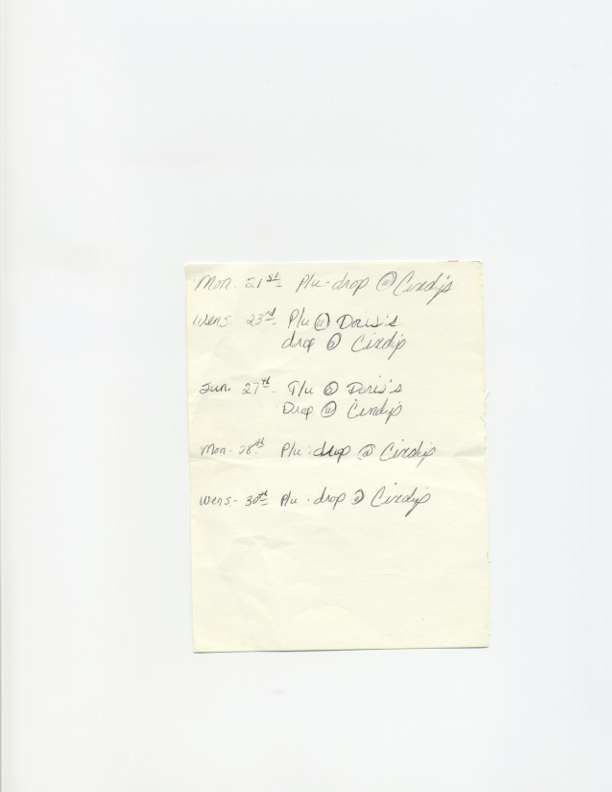 Mon. 21st P/u-drop @ Cindy's
Wens. 23rd P/u @ Doris's
drop @ Cindy's
Sun. 27th P/u @ Doris's
Drop @ Cindy's
Mon. 28th P/u. drop @ Cindy's
Wens- 30th P/u. drop @ Cindy's